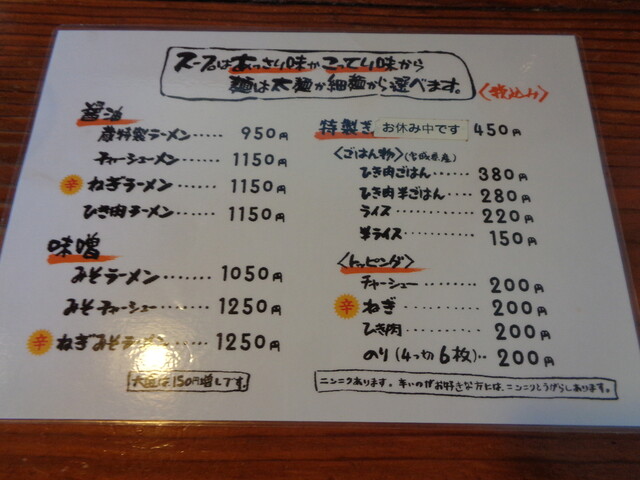 スープはあっさり味かこってり味から
麺は太麺か細麺から選べます。
〈税込み〉
醤油
特製ラーメン……950円
チャーシューメン……1150円
辛 ねぎラーメン……1150円
ひき肉ラーメン……1150円
味噌
みそラーメン……1050円
みそチャーシュー……1250円
辛 ねぎみそラーメン……1250円
大盛は150円増しです。
特製ぎ お休み中です 450円
〈ごはん物〉(宮城県産)
ひき肉ごはん……380円
ひき肉半ごはん……280円
ライス……220円
半ライス……150円
〈トッピング〉
チャーシュー……200円
辛 ねぎ……200円
ひき肉……200円
のり(4つ切6枚)‥200円
ニンニクあります。辛いのがお好きな方には、ニンニクとうがらしあります。